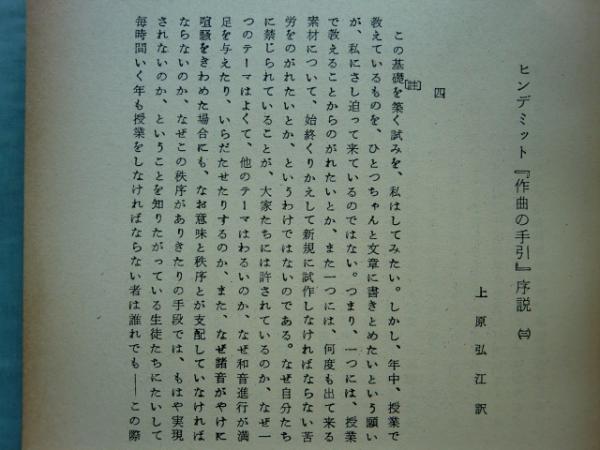 ヒンデミット『作曲の手引』序説 ㈢
上原弘江訳
四
この基礎を築く試みを、私はしてみたい。しかし、年中、授業で
〔註〕
教えているものを、ひとつちゃんと文章に書きとめたいという願い
が、私にさし迫って来ているのではない。つまり、一つには、授業
で教えることからのがれたいとか、また一つには、何度も出て来る
素材について、始終くりかえして新規に試作しなければならない苦
労をのがれたいとか、というわけではないのである。なぜ自分たち
に禁じられていることが、大家たちには許されているのか、なぜ一
つのテーマはよくて、他のテーマはわるいのか、なぜ和音進行が満
足を与えたり、いらだたせたりするのか、また、なぜ諸音がやけに
喧騒をきわめた場合にも、なお意味と秩序とが支配していなければ
ならないのか、なぜこの秩序がありきたりの手段では、もはや実現
されないのか、ということを知りたがっている生徒たちにたいして
毎時間いく年も授業をしなければならない者は誰れでも――この際